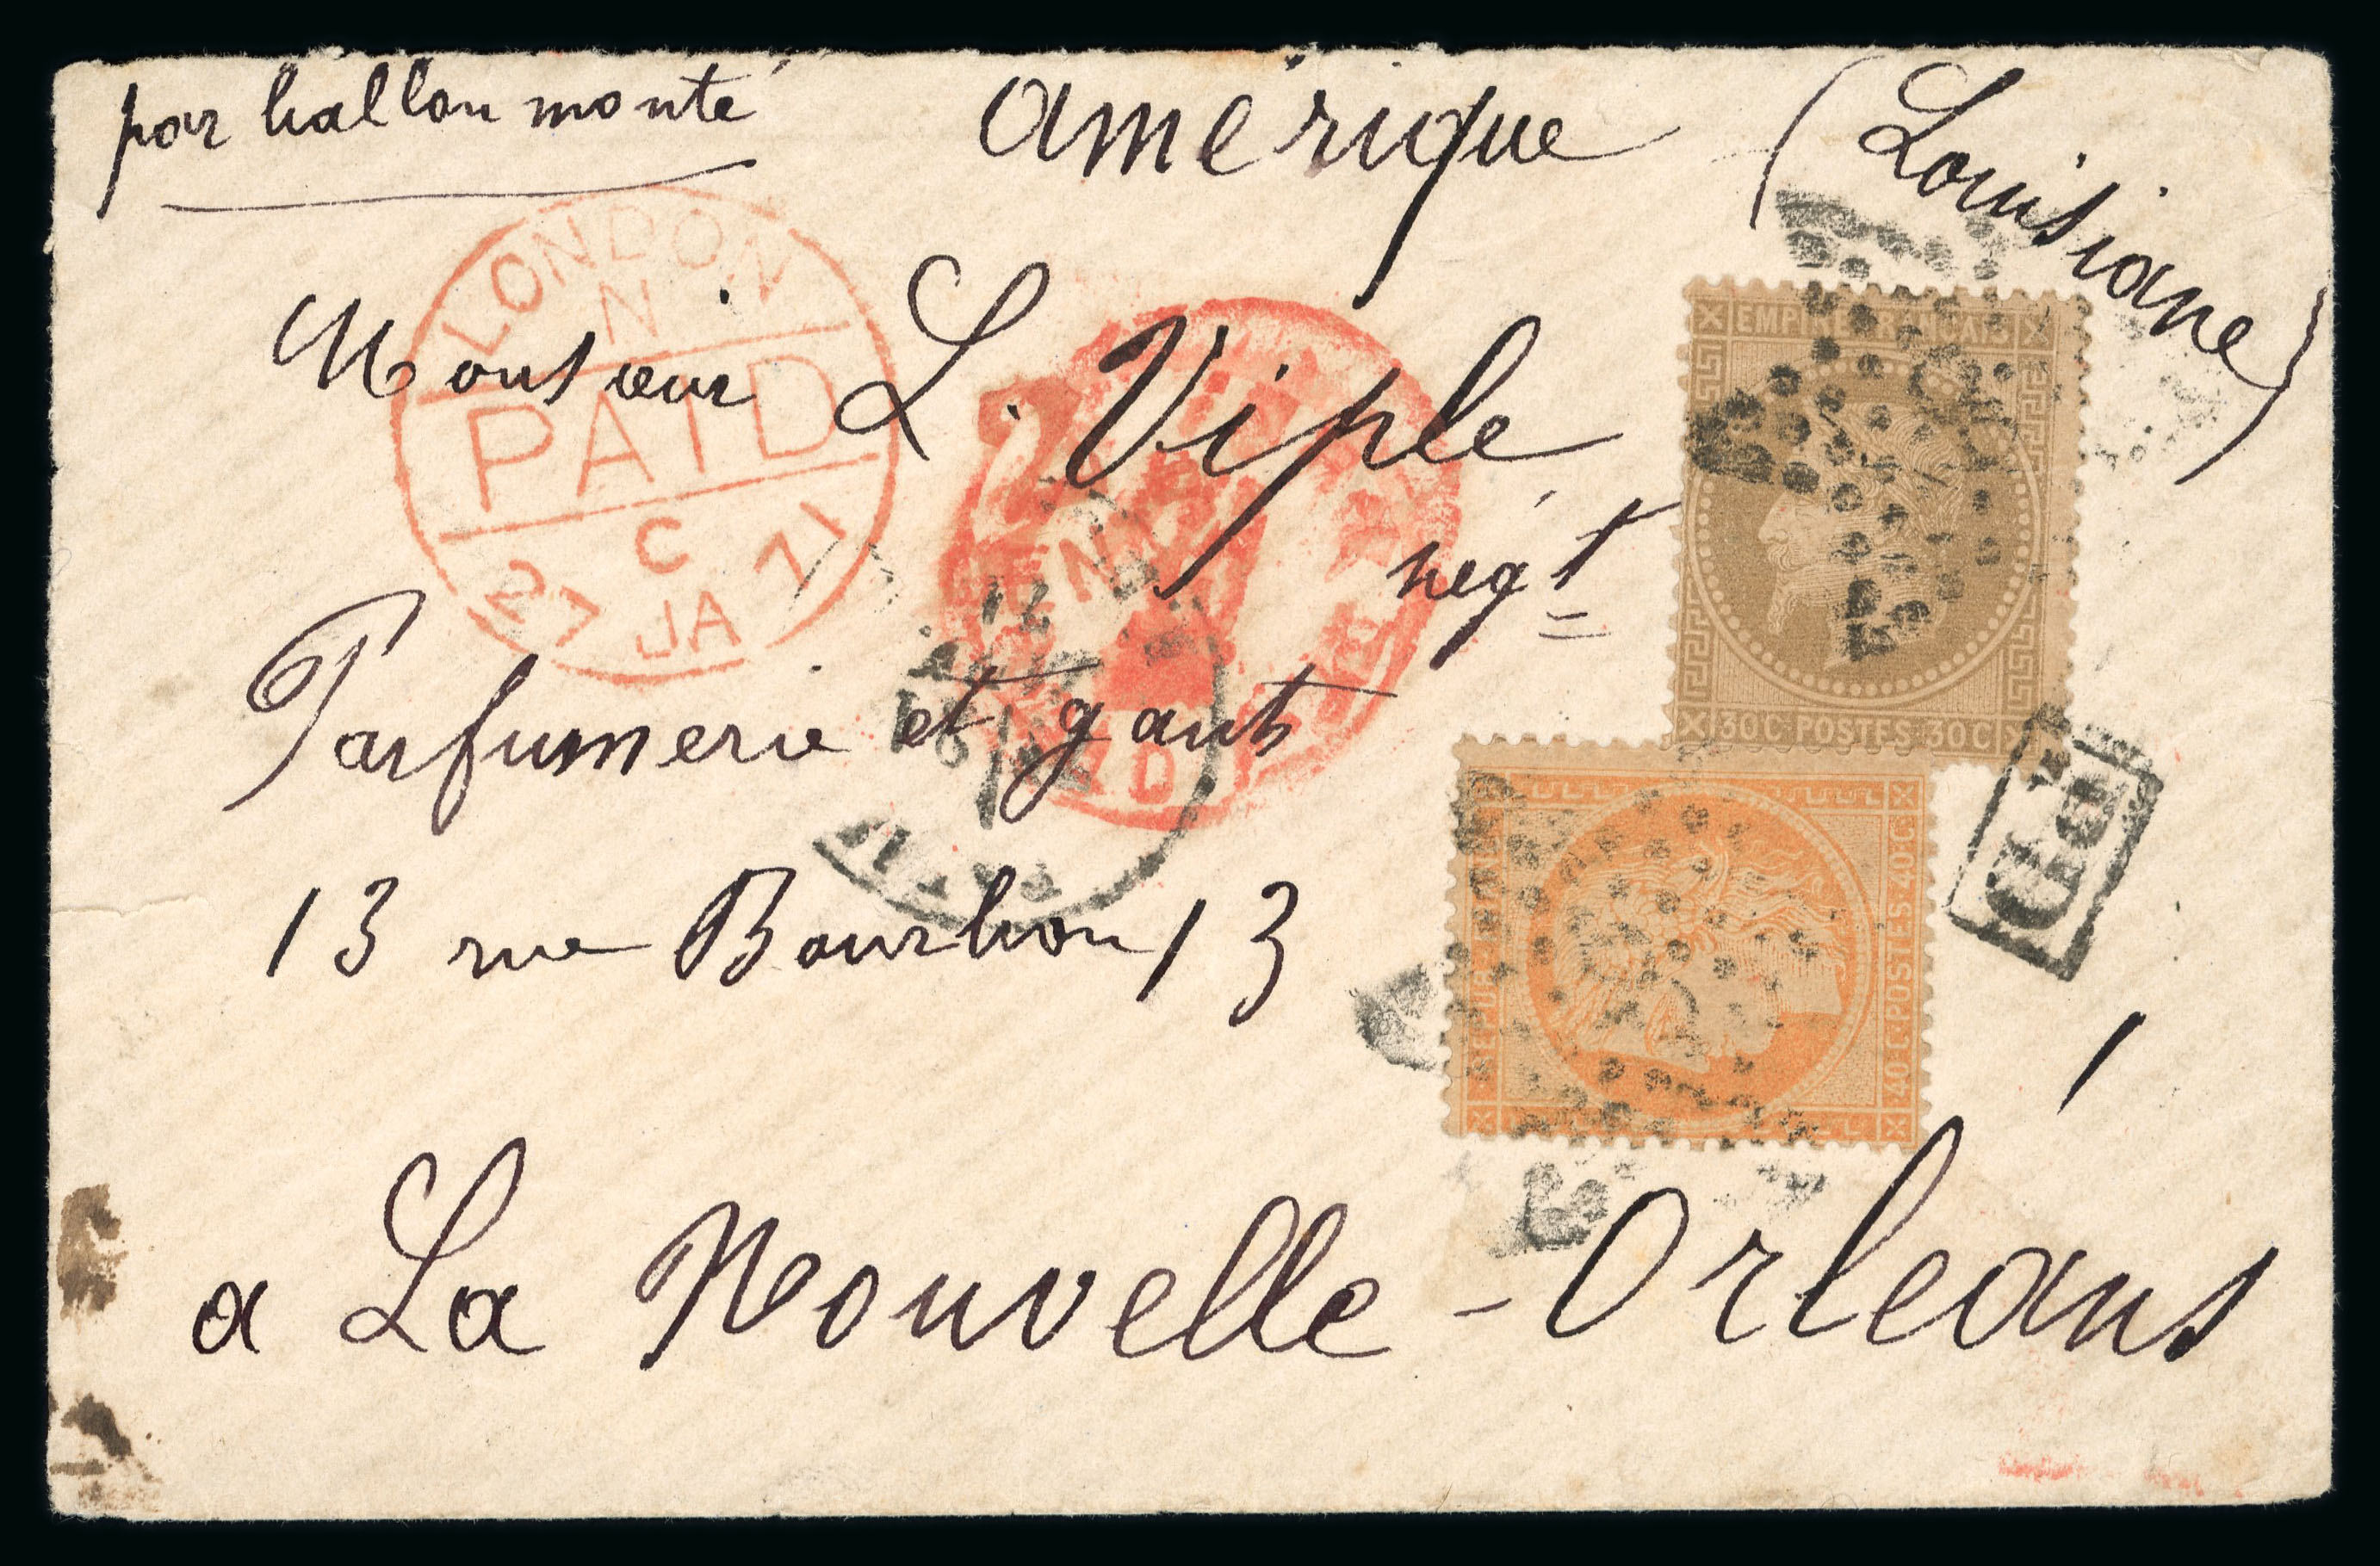 par ballon monté
Amérique (Louisiane)
LONDON
N
PAID
C
27 JA 71
Monsieur L. Viple
négt
Parfumerie et gants
13 rue Bourbon 13
a La Nouvelle-Orléans
EMPIRE FRANÇAIS
30C POSTES 30C
REPUB FRANC
40C POSTES 40C
PD